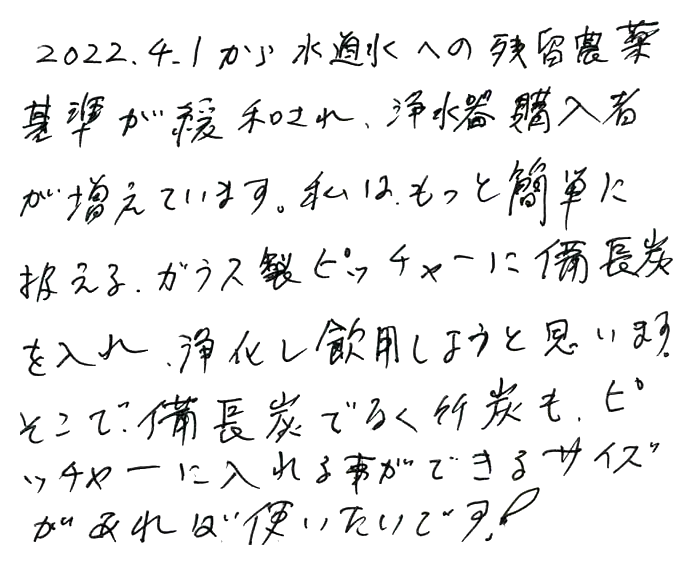 2022.4.1から水道水への残留農薬
基準が緩和され、浄水器購入者
が増えています。私は、もっと簡単に
扱える、ガラス製ピッチャーに備長炭
を入れ、浄化し飲用しようと思います。
そこで、備長炭でなく竹炭も、ピ
ッチャーに入れる事ができるサイズ
があれば使いたいです!